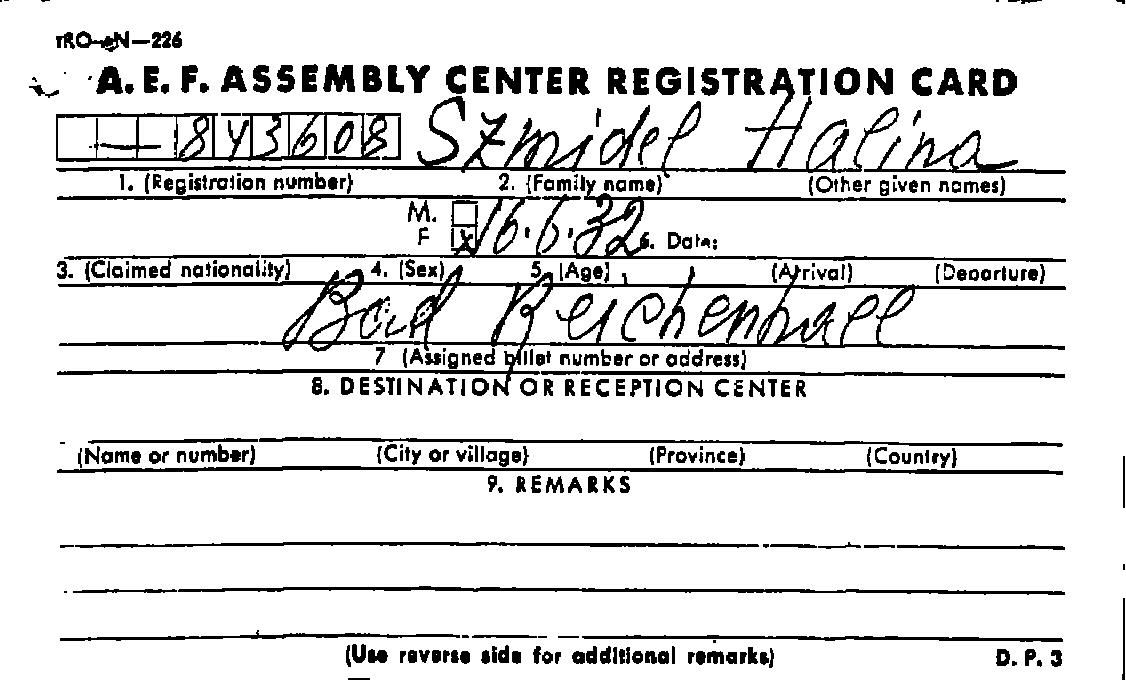 TRO-EN-226
A. E. F. ASSEMBLY CENTER REGISTRATION CARD
843608 Szmidel Halina
1. (Registration number) 2. (Family name) (Other given names)
M.
F x 16.6.32 6. Date:
3. (Claimed nationality) 4. (Sex) 5. (Age) (Arrival) (Departure)
Bad Reichenhall
7 (Assigned billet number or address)
8. DESTINATION OR RECEPTION CENTER
(Name or number) (City or village) (Province) (Country)
9. REMARKS
(Use reverse side for additional remarks) D. P. 3